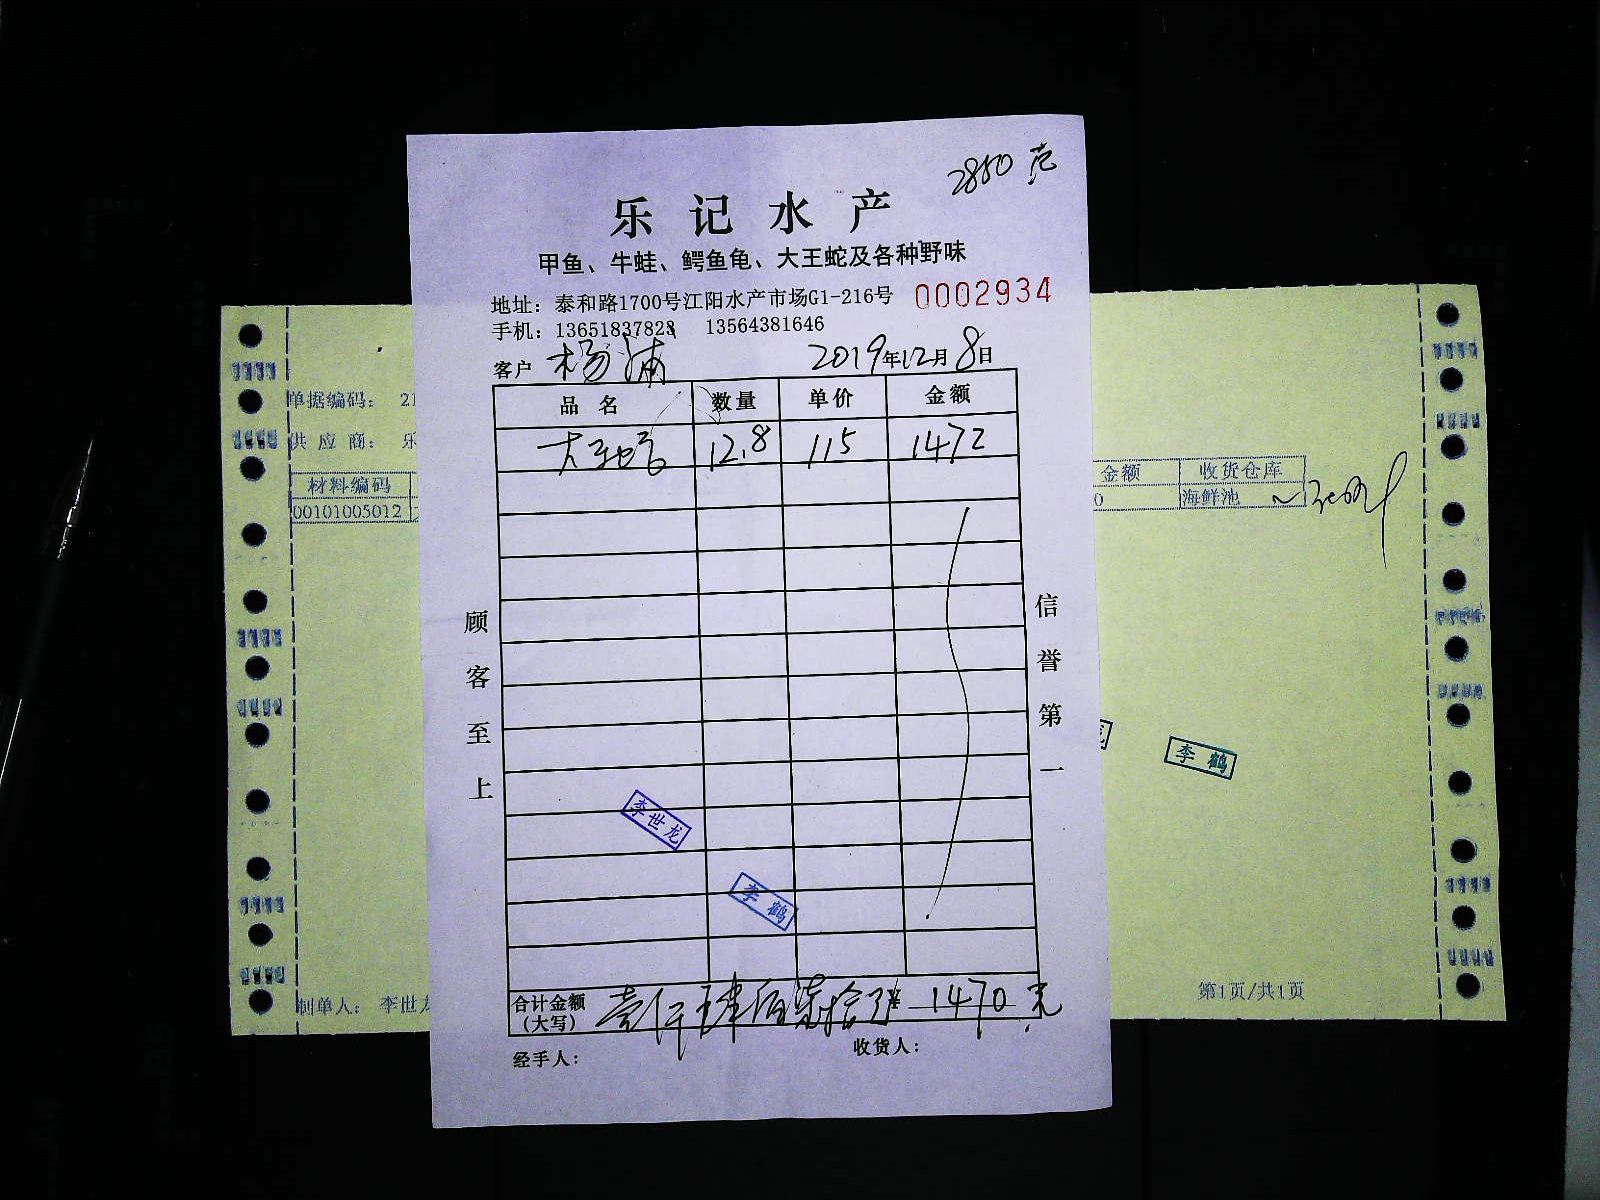 2850 范
乐记水产
甲鱼、牛蛙、鳄鱼龟、大王蛇及各种野味
地址：泰和路1700号江阳水产市场G1-216号 0002934
手机：13651837823 13564381646
客户 杨浦 2019年12月8日
品名 数量 单价 金额
大王蛇 12.8 115 1472
顾客至上
信誉第一
李世龙
李鹤
合计金额（大写） 壹仟肆佰柒拾 ¥ 1470 元
经手人： 收货人：
单据编码： 21
供应商： 乐
材料编码 金额 收货仓库
00101005012 0 海鲜池
李鹤
制单人： 李世龙 第1页/共1页